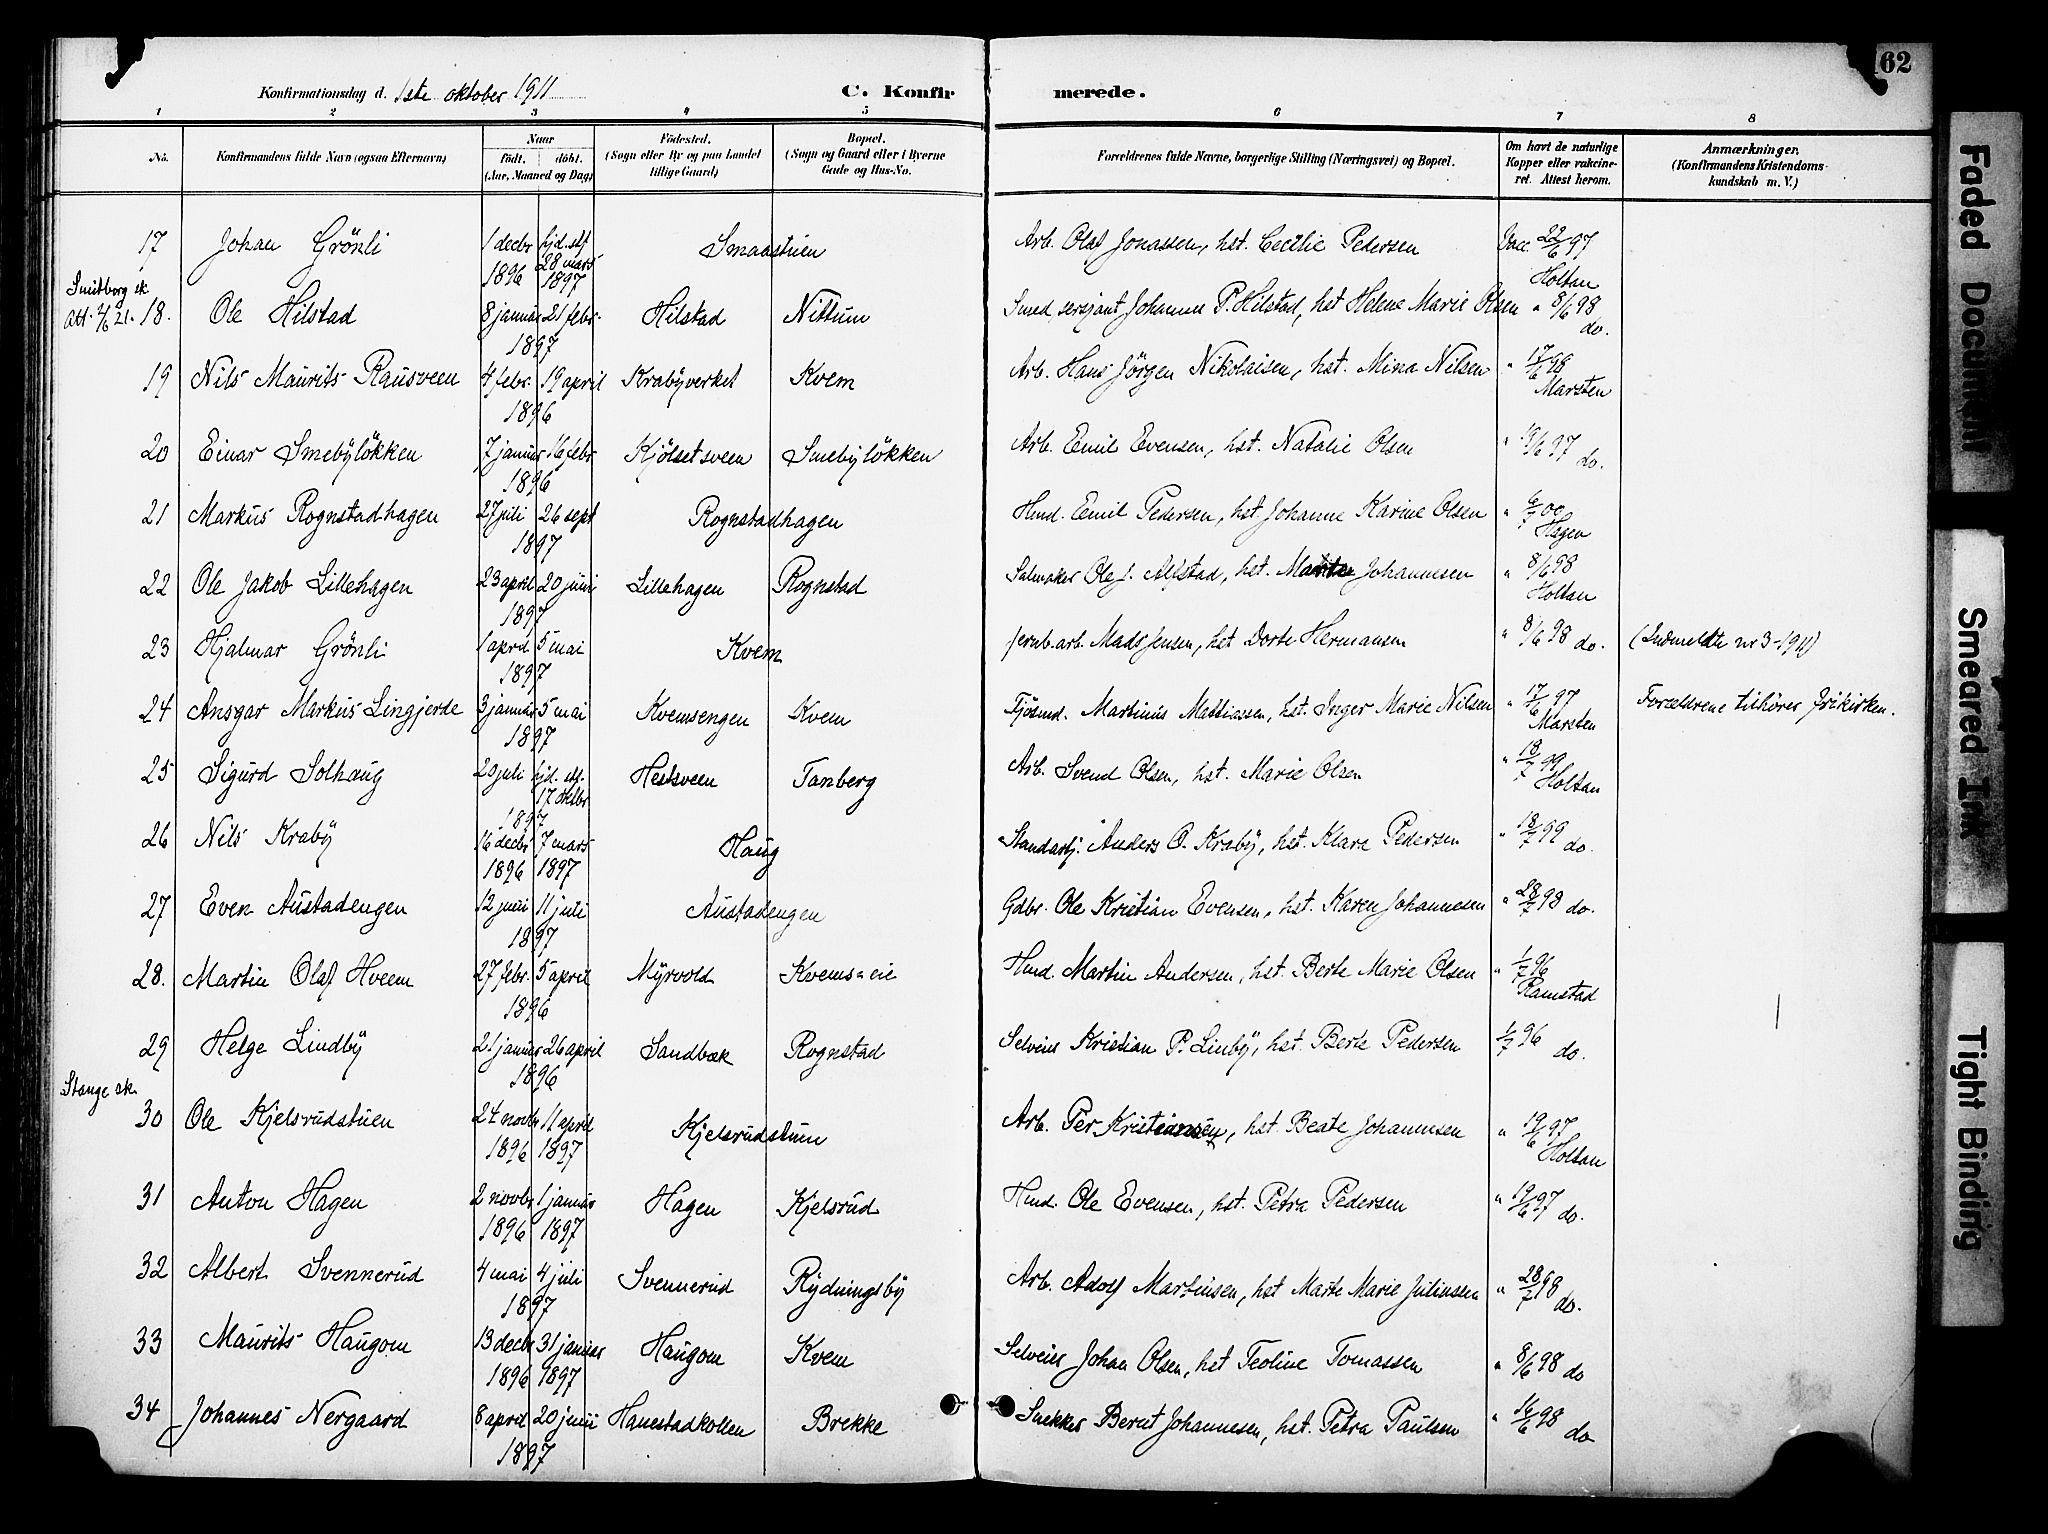 62
Konfirmationsdag d. 1ste oktober 1911
C. Konfirmerede.
1 2 3 4 5 6 7 8
No.
Konfirmandens fulde Navn (ogsaa Efternavn)
Naar
født. døbt.
(Aar, Maaned og Dag)
Fødested.
(Sogn eller By og paa Landet tillige Gaard)
Bopæl.
(Sogn og Gaard eller i Byerne Gade og Hus-No.
Forældrenes fulde Navne, borgerlige Stilling (Næringsvei) og Bopæl.
Om havt de naturlige Kopper eller vakcineret. Attest herom.
Anmærkninger.
(Konfirmandens Kristendomskundskab m. V.)
17 Johan Grönli 1 decbr 1896 hjd. stf 28 mars 1897 Smaastuen Arb. Olaf Jonassen, hst. Cecilie Pedersen Vacc. 22/6 97 Holtan
Smitborg sk.
Att. 2/6 21. 18. Ole Hilstad 8 januar 21 febr. 1897 Hilstad Nittum Smed, sersjant Johannes P. Hilstad, hst Helene Marie Olsen " 8/6 98 do.
19 Nils Maurits Rausveen 4 febr. 19 april 1896 Krabyverket Kvem Arb. Hans Jörgen Nikolaisen, hst. Mina Nilsen " 17/6 98 Marsten
20 Einar Smebylökken 7 januar 16 febr 1896 Kjölsetsveen Smebylökken Arb. Emil Evensen, hst. Natalie Olsen " 19/6 97 do.
21 Markus Rognstadhagen 27 juli 26 sept 1897 Rognstadhagen Hmd. Emil Pedersen, hst. Johanne Karine Olsen " 6/7 00 Hagen
22 Ole Jakob Lillehagen 23 april 20 juni 1897 Lillehagen Rognstad Salmaker Ole J. Alfstad, hst. Marte Johannesen " 8/6 98 Holtan
23 Hjalmar Grönli 1 april 5 mai 1897 Kvem Jernb.arb. Mads Jensen, hst Dorte Hermansen " 8/6 98 do. (Indmeldte nr 3-1911)
24 Ansgar Markus Lingjerde 3 januar 5 mai 1897 Kvemsengen Kvem Fjösmd. Martinus Mattiassen, hst. Inger Marie Nilsen " 17/6 97 Marsten Forældrene tilhörer frikirken.
25 Sigurd Solhaug 20 juli hjd. stf. 17 oktbr 1897 Hestsveen Tanberg Arb. Svend Olsen, hst. Marie Olsen " 18/7 99 Holtan
26 Nils Kraby 16 decbr 1896 7 mars 1897 Haug Standartj. Anders O. Kraby, hst. Klara Pedersen " 18/7 99 do.
27 Even Austadengen 12 juni 11 juli 1897 Austadengen Gdbr. Ole Kristian Evensen, hst. Karen Johannesen " 28/7 98 do.
28. Martin Olaf Hveem 27 febr. 5 april 1896 Myrvold Kvems-eie Hmd. Martin Andersen, hst. Berte Marie Olsen " 1/7 96 Ramstad
29 Helge Lindby 21 januar 26 april 1896 Sandbæk Rognstad Selveier Kristian P. Linby, hst. Berte Pedersen 1/7 96 do.
Stange sk.
30 Ole Kjelsrudstuen 24 novbr 1896 11 april 1897 Kjelsrudstuen Arb. Per Kristiansen, hst. Beate Johannesen " 19/6 97 Holtan
31 Anton Hagen 2 novbr 1896 1 januar 1897 Hagen Kjelsrud Hmd. Ole Evensen, hst. Petra Pedersen " 19/6 97 do.
32 Albert Svennerud 4 mai 4 juli 1897 Svennerud Rydningsby Arb. Adolf Martinsen, hst Marte Marie Juliussen " 28/7 98 do.
33 Maurits Haugom 13 decbr 1896 31 januar 1897 Haugom Kvem Selveier Johan Olsen, hst Teoline Tomassen " 8/6 98 do
34 Johannes Nergaard 8 april 20 juni 1897 Hanestadkollen Brekke Snekker Bernt Johannesen, hst. Petra Paulsen " 14/6 98 do
Faded Document
Smeared Ink
Tight Binding